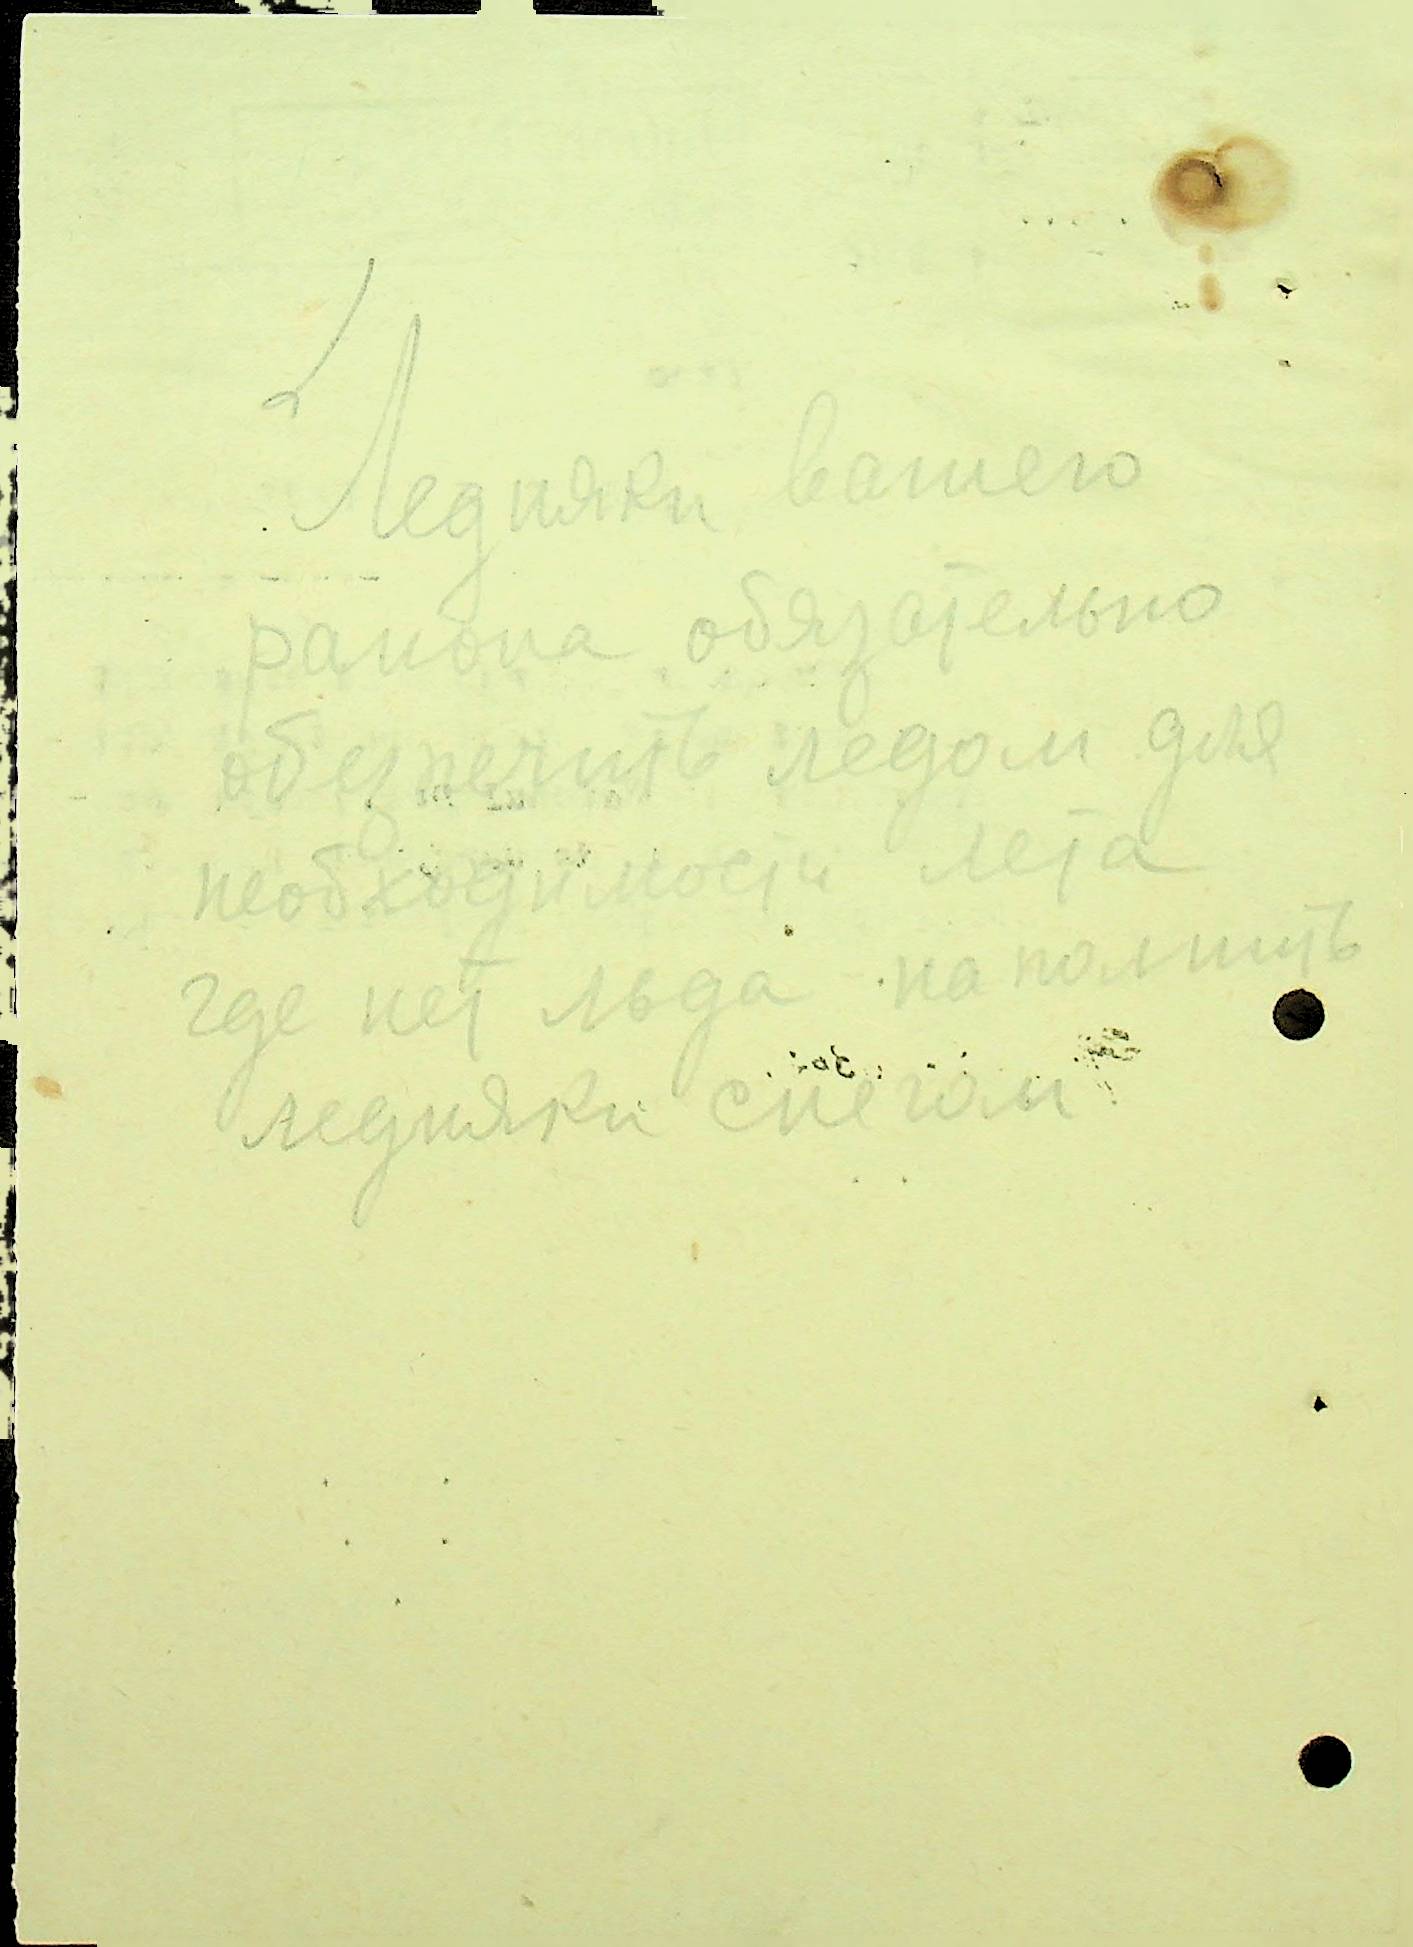 Ледняки вашего
района обязательно
обезпечить ледом для
необходимости лета
где нет льда наполнить
ледняки снегом